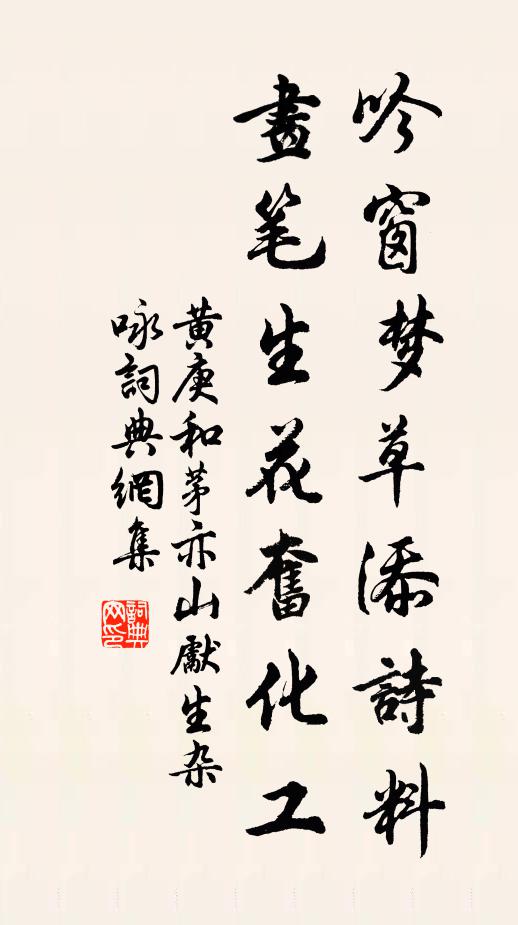 吟窗梦草添詩料
畫笔生花奮化工
黄庚和茅亦山獻生杂
咏詞典網集
詞典
网印